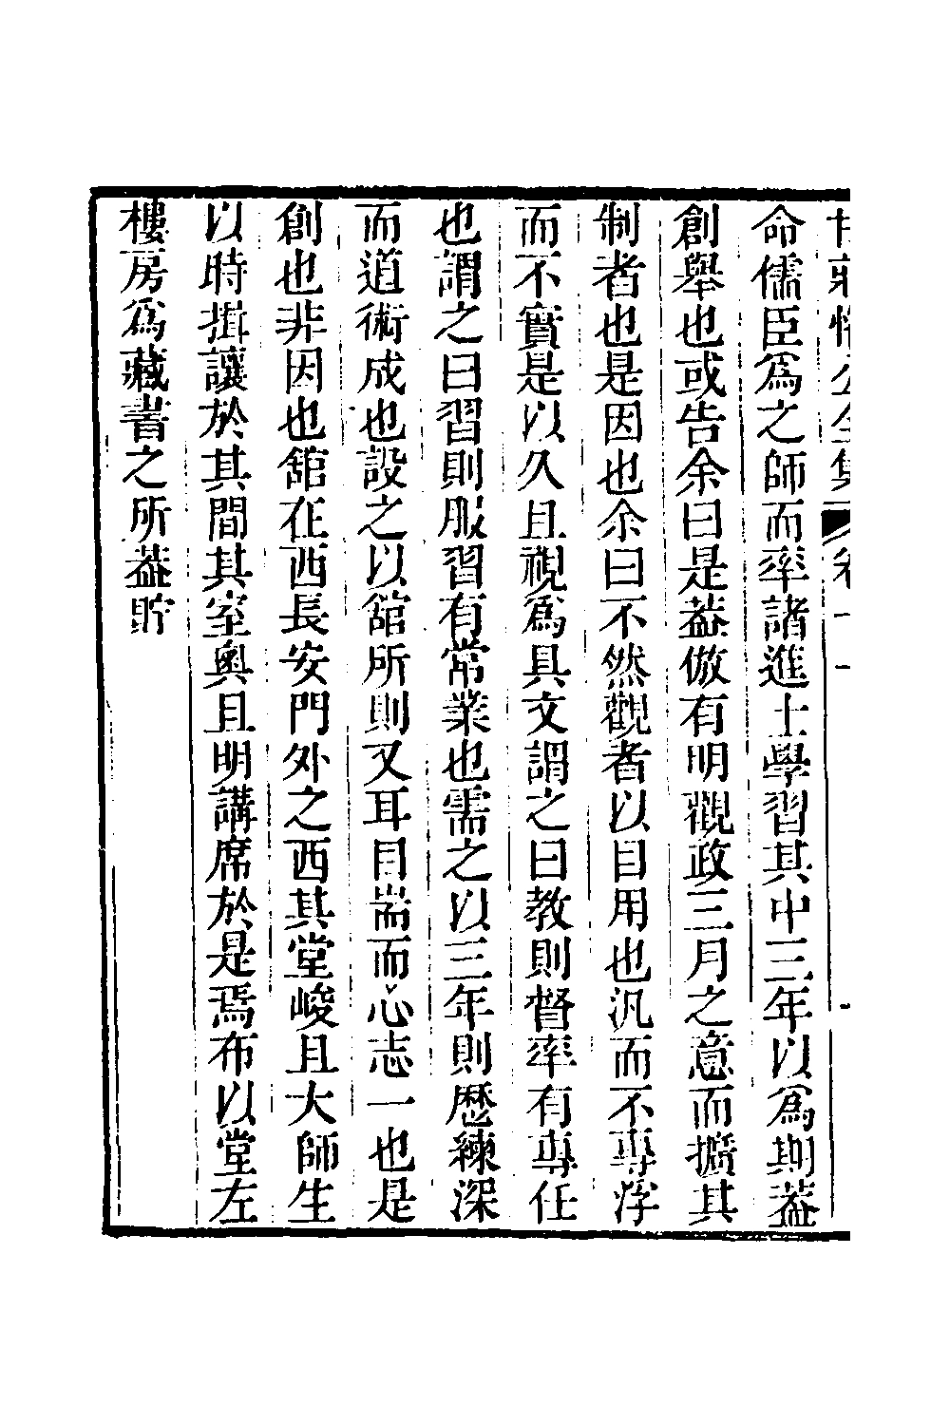 命儒臣爲之師而率諸進士學習其中三年以爲期葢
創舉也或告余曰是葢倣有明觀政三月之意而擴其
制者也是因也余曰不然觀者以目用也汎而不專浮
而不實是以久且視爲具文謂之曰教則督率有專任
也謂之曰習則服習有常業也需之以三年則歷練深
而道術成也設之以舘所則又耳目耑而心志一也是
創也非因也舘在西長安門外之西其堂峻且大師生
以時揖讓於其間其室奥且明講席於是焉布以堂左
樓房爲藏書之所葢貯